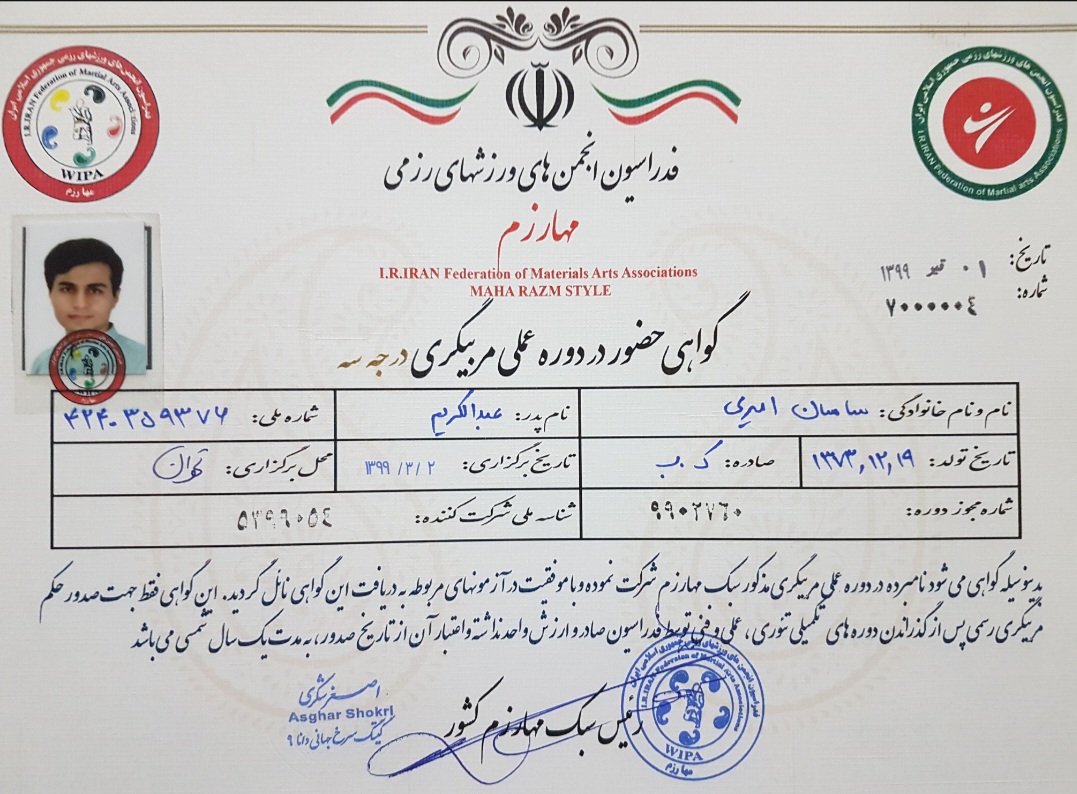 فدراسیون انجمن های ورزشهای رزمی جمهوری اسلامی ایران
I.R.IRAN Federation of Martial Arts Associations
WIPA
مهارزم
فدراسیون انجمن های ورزشهای رزمی جمهوری اسلامی ایران
I.R.IRAN Federation of Martial arts Associations
فدراسیون انجمن های ورزشهای رزمی
مهارزم
I.R.IRAN Federation of Materials Arts Associations
MAHA RAZM STYLE
تاریخ: ۰۱ تیر ۱۳۹۹
شماره: ۷۰۰۰۰۰۴
گواهی حضور در دوره عملی مربیگری درجه سه
نام و نام خانوادگی: ساسان امیری نام پدر: عبدالکریم شماره ملی: ۴۲۴۰۳۵۹۳۷۶
تاریخ تولد: ۱۳۷۳,۱۲,۱۹ صادره: ک.ب تاریخ برگزاری: ۱۳۹۹/۳/۲ محل برگزاری: تهران
شماره مجوز دوره: ۹۹۰۲۷۶۰ شناسه ملی شرکت کننده: ۵۳۹۹۰۵۴
بدینوسیله گواهی می شود نامبرده در دوره عملی مربیگری مذکور سبک مهارزم شرکت نموده و با موفقیت در آزمونهای مربوطه به دریافت این گواهی نائل گردید. این گواهی فقط جهت صدور حکم
مربیگری رسمی پس از گذراندن دوره های تکمیلی تئوری، عملی و فنی توسط فدراسیون صادر و ارزش واحد نداشته و اعتبار آن از تاریخ صدور، به مدت یک سال شمسی می باشد
رئیس سبک مهارزم کشور
اصغر شکری
Asghar Shokri
کینگ سرخ جهانی دانا ۹
فدراسیون انجمن های ورزشهای رزمی جمهوری اسلامی ایران
I.R.IRAN Federation of Martial Arts Associations
WIPA
مهارزم